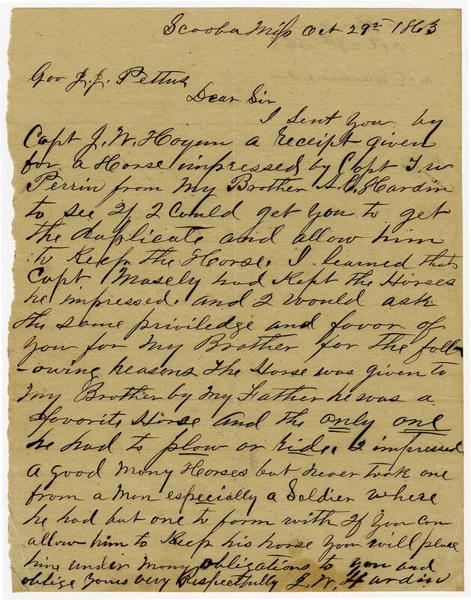 Scooba Miss Oct 29th 1863
Gov J. J. Pettus
Dear Sir
I sent you by
Capt J. W. Hoyun a receipt given
for a Horse impressed by Capt T. W
Perrin from My Brother A. C. Hardin
to see If I could get You to get
the duplicate and allow him
to Keep the Horse. I learned that
Capt. Mosely had Kept the Horses
he impressed and I would ask
the same priviledge and favor of
you for My Brother for the foll-
-owing reasons The Horse was given to
My Brother by My Father he was a
favorite Horse and the only one
he had to plow or ride. I impressed
a good Many Horses but never took one
from a Man especially a Soldier where
he had but one to farm with If You can
allow him to Keep his horse you will place
him under Many obligations to you and
oblige Yours very Respectfully J. W. Hardin